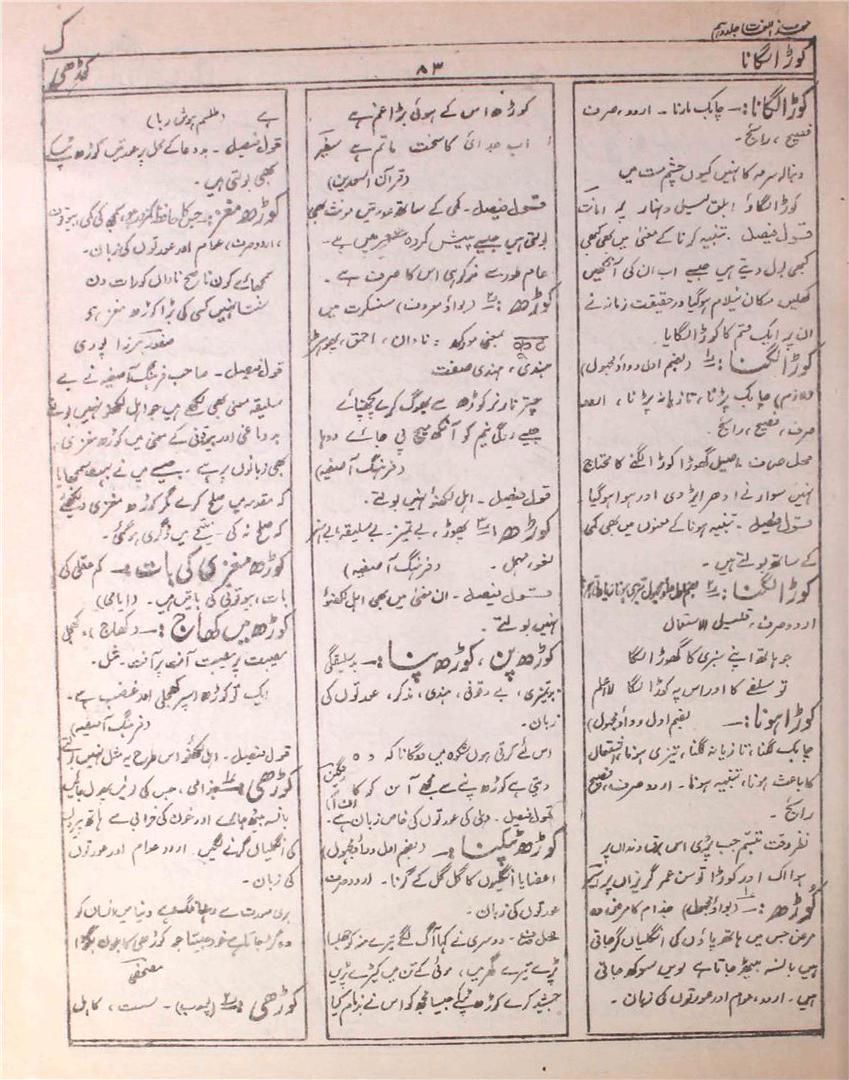 مہذب اللغات جلد دہم
ک
کوڑا لگانا
۸۳
کوڑھی
کوڑا لگانا :۔ چابک مارنا ۔ اردو، صرف
فصیح ، رائج ۔
دنبالہ سرمہ کا نہیں کیوں چشم مست میں
کوڑا لگاؤ ابلق لیل و نہار پہ امانت
قول فیصل ۔ تنبیہ کرنا کے معنی میں بھی کبھی
کبھی بول دیتے ہیں جیسے اب ان کی آنکھیں
کھلیں مکان نیلام ہوگیا در حقیقت زمانہ نے
ان پر ایک قسم کا کوڑا لگایا۔
کوڑا لگنا :۱ (بضم اول و واؤ مجہول)
(لازم) چابک پڑنا ، تازیانہ پڑنا ، اردو
صرف ، فصیح ، رائج ۔
محل صرف اصیل گھوڑا کوڑا لگنے کا محتاج
نہیں سوار نے ادھر ایڑ دی اور ہوا ہو گیا۔
قول فیصل ۔ تنبیہ ہونا کے معنوں میں بھی کمی
کے ساتھ بولتے ہیں ۔
کوڑا لگنا :۲
اردو صرف ، قلیل الاستعمال
جو ہاتھ اپنے سبزی کا گھوڑا لگا
تو سلفے کا اور اس پہ کوڑا لگا لااعلم
کوڑا ہونا :۔ بضم اول و واؤ مجہول)
چابک لگنا، تازیانہ لگنا، تیزی ہونا، اشتعال
کا باعث ہونا، تنبیہ ہونا ۔ اردو صرف، فصیح
رائج ۔
نظر وقت تبسم جب پڑی اس کے دنداں پر
ہوا اک اور کوڑا توسن عمر گریزاں پر
کوڑھ :۱ (بواؤ مجہول) جذام کا مرض، وہ
مرض جس میں ہاتھ پاؤں کی انگلیاں گر جاتی
ہیں بانسہ بیٹھ جاتا ہے نسیں سوکھ جاتی
ہیں ۔ اردو، عوام اور عورتوں کی زبان ۔
کوڑھ اس کے ہوئی بڑا غم ہے
اب جدائی کا سخت ماتم ہے سفیر
(قران السعدین)
قول فیصل ۔ کمی کے ساتھ عورتیں مونث بھی
بولتی ہیں جیسے پیش کردہ شعر میں ہے ۔
عام طور سے مذکر ہی اس کا صرف ہے ۔
کوڑھ :۲ (بواؤ معروف) سنسکرت میں
بمعنی مورکھ : نادان ، احمق ، پھوہڑ
ہندی ، ہندی صفت
چتر نار نر کوڑھ سے بھوگ کرے پچھتائے
جیسے روگی نیم کو آنکھ میچ پی جائے دوہا
(فرہنگ آصفیہ)
قول فیصل ۔ اہل لکھنؤ نہیں بولتے ۔
کوڑھ :۳ پھوہڑ ، بے تمیز ۔ بے سلیقہ، بے ہنر
لغو، مہمل ۔ (فرہنگ آصفیہ)
قول فیصل ۔ ان معنی میں بھی اہل لکھنؤ
نہیں بولتے ۔
کوڑھ پن ، کوڑھ پنا :۔ بد سلیقگی
بدتمیزی ، بے وقوفی ، ہندی ، مذکر، عورتوں کی
زبان ۔
اس لئے کرتی ہوں شکوہ میں دوگانا کہ وہ
دیتی ہے کوڑھ پنے سے مجھے آ ن کو کا رنگین
قول فیصل ۔ دہلی کی عورتوں کی خاص زبان ہے ۔
کوڑھ ٹپکنا :۔ (بضم اول و واؤ مجہول)
اعضا یا انگلیوں کا گل گل کے گرنا ۔ اردو صرف
عورتوں کی زبان ۔
محل صرف ۔ دوسری نے کہا آگ لگے تیرے منہ کو جھلسا
پڑے تیرے گھر میں ، موئی کے تن میں کیڑے پڑیں
جمشید کرے کوڑھ ٹپکے جیسا مجھ کو اس نے بدنام کیا
ہے (طلسم ہوش ربا)
قول فیصل ۔ بد دعا کے محل پر عورتیں کوڑھ ٹپکے
بھی بولتی ہیں ۔
کوڑھ مغز :۔ جس کا حافظہ کمزور ہو، سمجھ کی کمی، بیوقوف
، اردو صرف ، عوام اور عورتوں کی زبان ۔
سمجھائے کون ناصح ناداں کو رات دن
سنتا نہیں کسی کی بڑا کوڑھ مغز ہے
صفدر مرزا پوری
قول فیصل ۔ صاحب فرہنگ آصفیہ نے بے
سلیقہ معنی بھی لکھے ہیں جو اہل لکھنؤ نہیں بولتے
بد دماغی اور بیوقوفی کے معنی میں کوڑھ مغزی ،
بھی زبانوں پر ہے ۔ جیسے میں نے بہت سمجھایا
کہ مقدمہ میں صلح کرے مگر کوڑھ مغزی دیکھئے
کہ صلح نہ کی ۔ نتیجے میں ڈگری ہو گئی ۔
کوڑھ مغزی کی بات :۔ کم عقلی کی
بات ، بیوقوفی کی باتیں ہیں ۔ (ایامی)
کوڑھ میں کھاج :۔ (کھاج)، کھجلی
مصیبت پر مصیبت آفت پر آفت ۔ مثل ۔
ایک تو کوڑھ اسپر کھجلی اور غضب ہے ۔
(فرہنگ آصفیہ)
قول فیصل ۔ اہل لکھنؤ اس طرح یہ مثل نہیں بولتے
کوڑھی :۱ جذامی ، جس کی رگیں پھول جائیں
بانسہ بیٹھ جائے اور خون کی خرابی سے ہاتھ پیر
کی انگلیاں گرنے لگیں ۔ اردو عوام اور عورتوں
کی زبان ۔
بری صورت سے رہنا ننگ ہے دنیا میں انساں کو
مصحفی
کوڑھی :۲ (پورب) ۔ سست ، کاہل